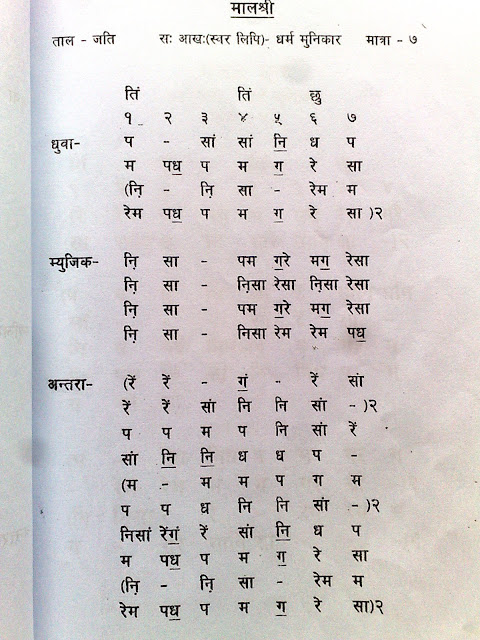 मालश्री
ताल - जति राः आखः(स्वर लिपि)- धर्म मुनिकार मात्रा - ७
तिं तिं छु
१ २ ३ ४ ५ ६ ७
धुवा- प - सां सां नि॒ ध प
म पध॒ प म ग॒ रे सा
(नि़ - नि़ सा - रेम म
रेम पध॒ प म ग॒ रे सा )२
म्युजिक- नि़ सा - पम ग॒रे मग॒ रेसा
नि़ सा - नि़सा रेसा नि़सा रेसा
नि़ सा - पम ग॒रे मग॒ रेसा
नि़ सा - निसा रेम रेम पध॒
अन्तरा- (रें रें - गं॒ - रें सां
रें रें सां नि नि सां - )२
प प म प नि सां रें
सां नि॒ नि॒ ध ध प -
(म - म म प ग म
प प ध नि नि सां - )२
निसां रेंगं॒ रें सां नि॒ ध प
म पध॒ प म ग॒ रे सा
(नि़ - नि़ सा - रेम म
रेम पध॒ प म ग॒ रे सा)२